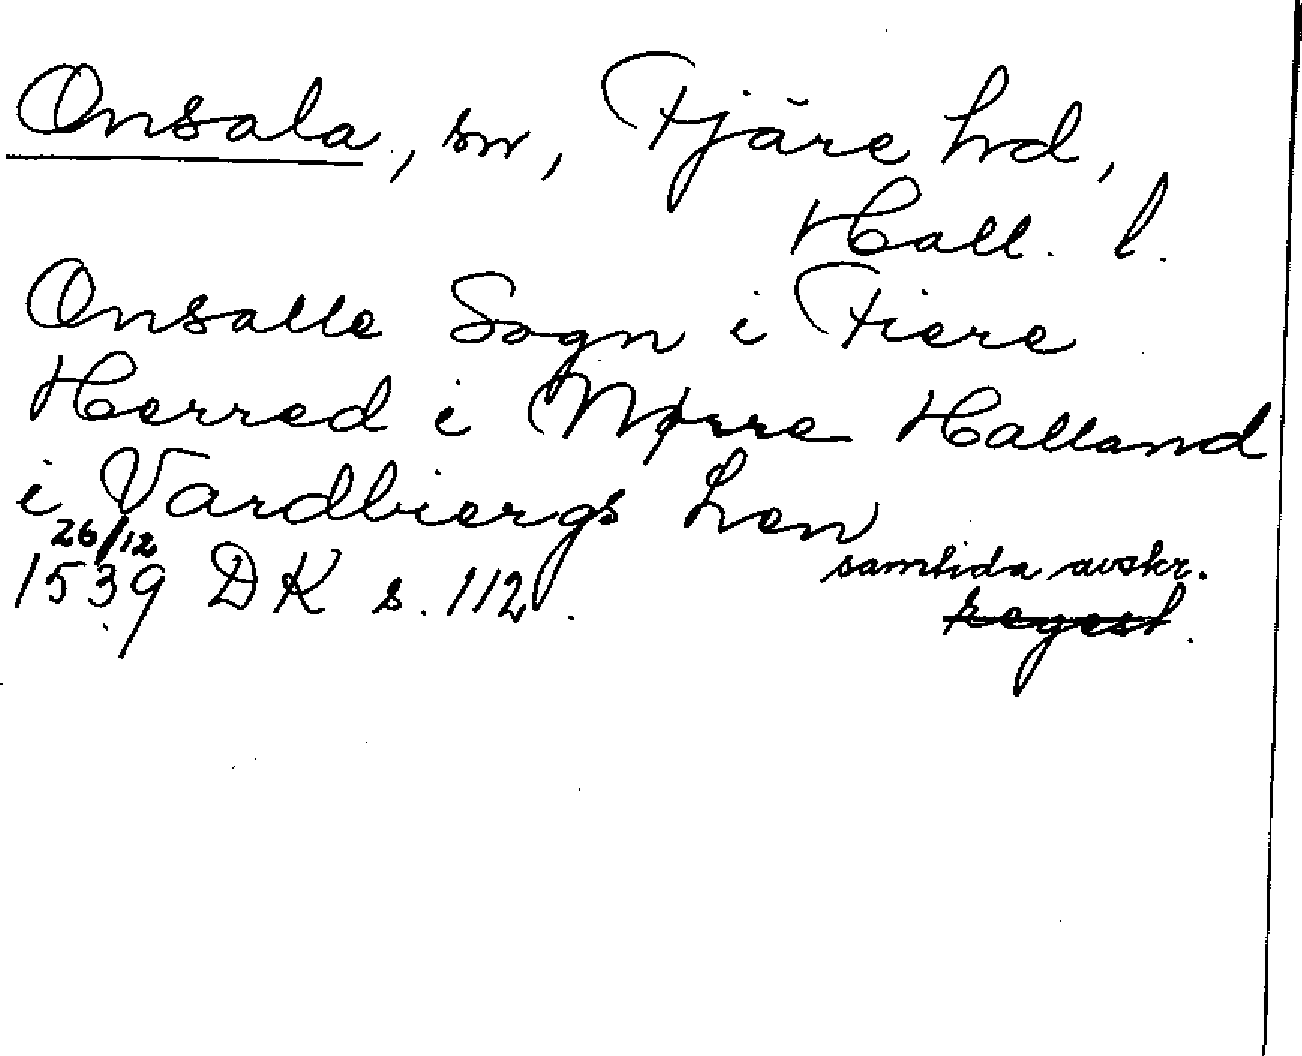 Onsala, sn, Fjäre hd,
Hall. l.
Onsalle Sogn i Fiere
Herred i Nørre Halland
i Vardbiergs Len
26/12 samtida avskr.
1539 DK s. 112. regest.